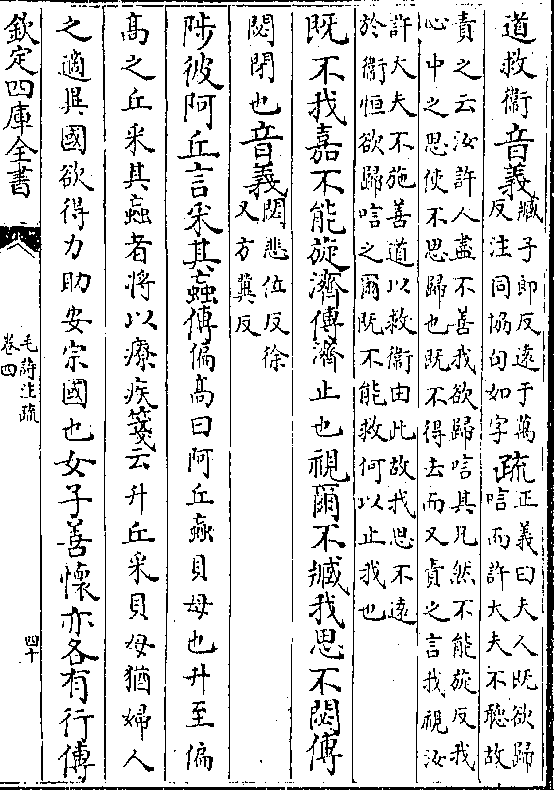 道救衞音義臧子郎反遠于萬
反注同協句如字疏正義曰夫人既欲歸
唁而許大夫不聽故
責之云汝許人盡不善我欲歸唁其兄然不能旋反我
心中之思使不思歸也既不得去而又責之言我視汝
許大夫不施善道以救衞由此故我思不遠
於衞恒欲歸唁之爾既不能救何以止我也
既不我嘉不能旋濟傳濟止也視爾不臧我思不閟傳
閟閉也音義閟悲位反徐
又方冀反
陟彼阿丘言采其蝱傳偏高曰阿丘蝱貝母也升至偏
高之丘采其蝱者將以療疾箋云升丘采貝母猶婦人
之適異國欲得力助安宗國也女子善懷亦各有行傳
欽定四庫全書
毛詩注疏
卷四
四十